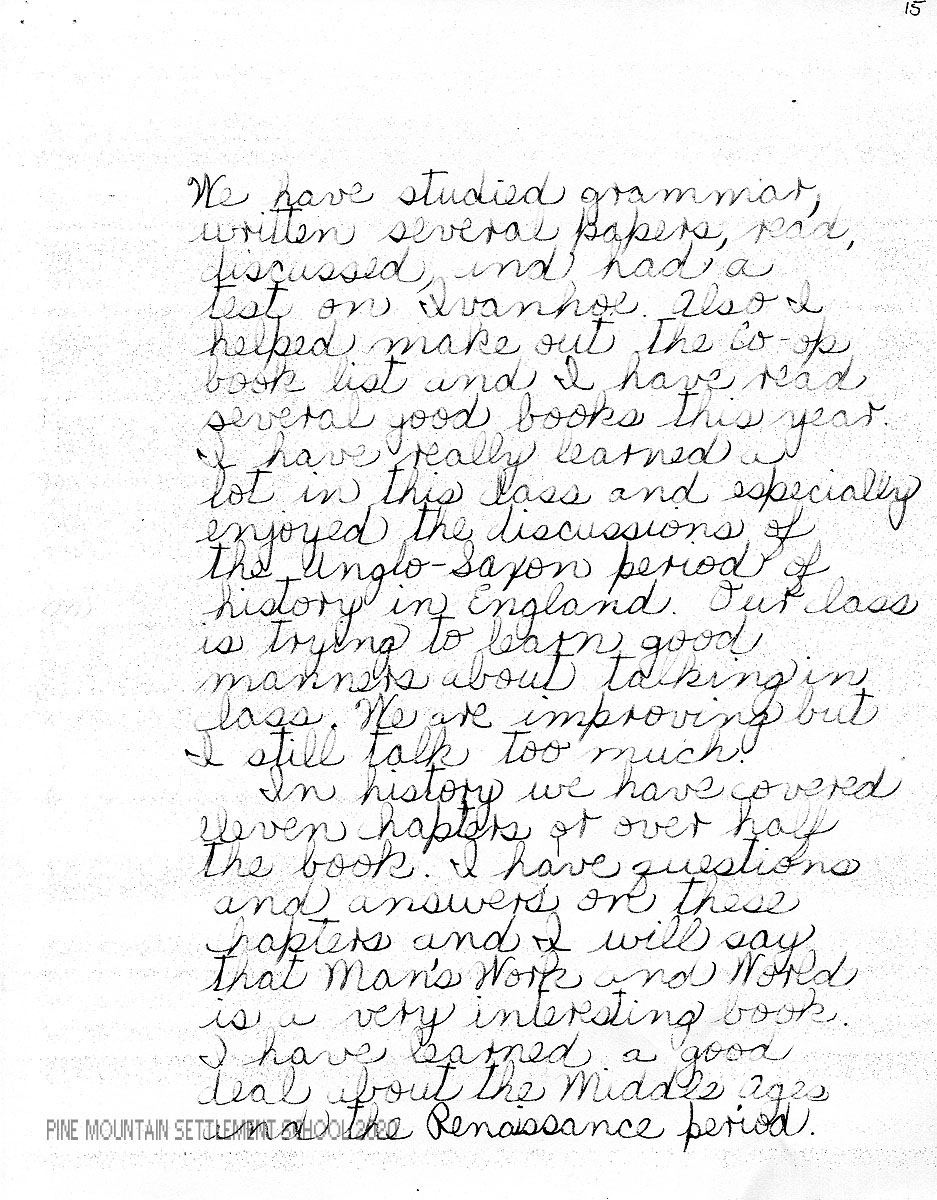 15
We have studied grammar,
written several papers, read,
discussed, and had a
test on Ivanhoe. Also I
helped make out the Co-op
book list and I have read
several good books this year.
I have really learned a
lot in this class and especially
enjoyed the discussions of
the Anglo-Saxon period of
history in England. Our class
is trying to learn good
manners about talking in
class. We are improving but
I still talk too much.
In history we have covered
eleven chapters or over half
the book. I have questions
and answers on these
chapters and I will say
that Man's Work and World
is a very interesting book.
I have learned a good
deal about the Middle Ages
and the Renaissance period.
PINE MOUNTAIN SETTLEMENT SCHOOL 2020